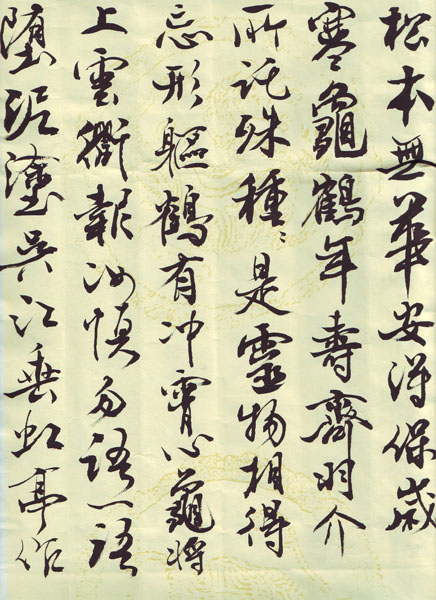 松本無華安得保歲
寒龜鶴年壽齊羽介
所託殊種〻是靈物相得
忘形軀鶴有冲霄心龜將
上雲衢報汝慎勿語一語
墮泥塗吳江垂虹亭作